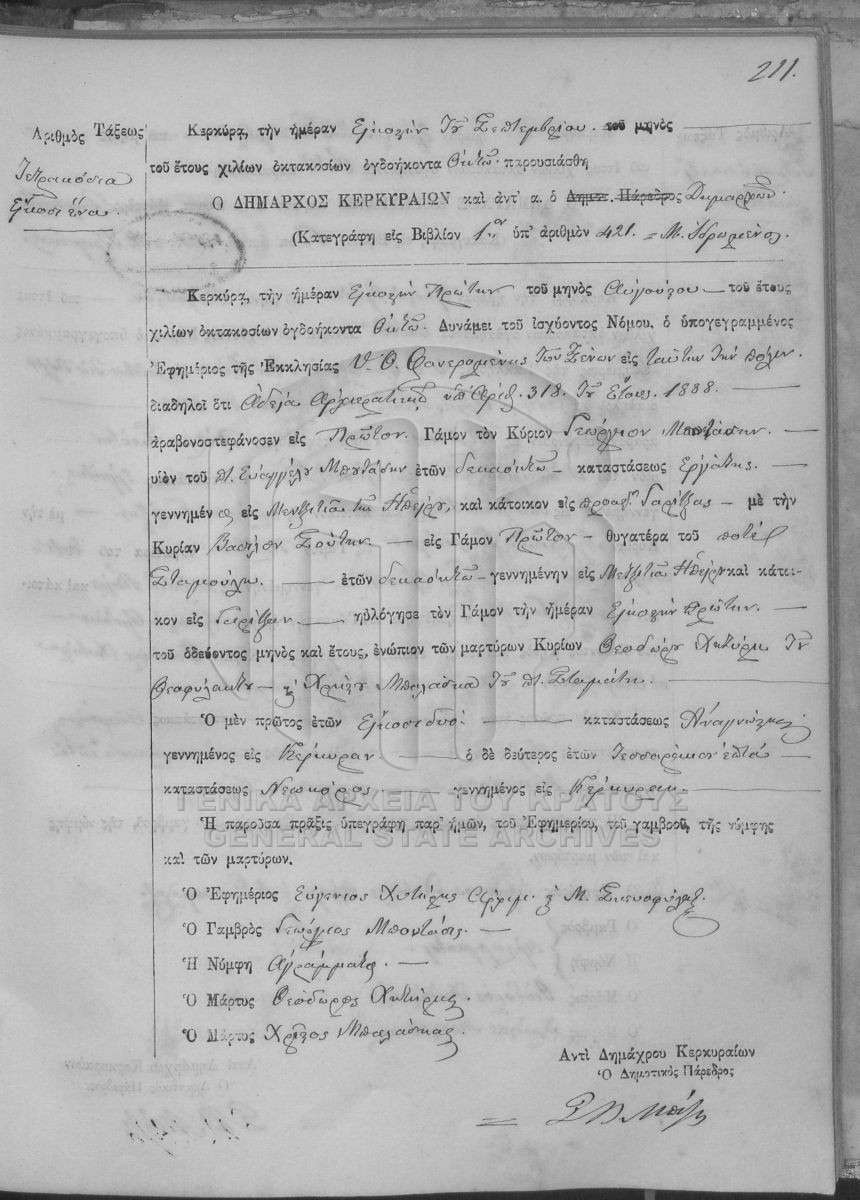 211.
Ἀριθμὸς Τάξεως
Τετρακόσια
Εἴκοσι ἕνα.
Κερκύρᾳ, τὴν ἡμέραν Εἰκοστὴν Τοῦ Σεπτεμβρίου. τοῦ μηνὸς
τοῦ ἔτους χιλίων ὀκτακοσίων ὀγδοήκοντα Ὀκτώ. παρουσιάσθη
Ὁ ΔΗΜΑΡΧΟΣ ΚΕΡΚΥΡΑΙΩΝ καὶ ἀντ' α. ὁ Δημοτ. Πάρεδρος
(Κατεγράφη εἰς Βιβλίον 1ον ὑπ' ἀριθμὸν 421.
Κερκύρᾳ, τὴν ἡμέραν Εἰκοστὴν Πρώτην τοῦ μηνὸς Αὐγούστου τοῦ ἔτους
χιλίων ὀκτακοσίων ὀγδοήκοντα Ὀκτώ. Δυνάμει τοῦ ἰσχύοντος Νόμου, ὁ ὑπογεγραμμένος
Ἐφημέριος τῆς Ἐκκλησίας Υ. Θ. Φανερωμένης τῶν Ξένων εἰς ταύτην τὴν πόλιν.
διαδηλοῖ ὅτι Ἀδείᾳ Ἀρχιερατικῇ ὑπ' Ἀριθ. 318. τοῦ Ἔτους 1888.
ἀραβονοστεφάνοσεν εἰς Πρῶτον. Γάμον τὸν Κύριον Γεώργιον
υἱὸν τοῦ πτ. Εὐαγγέλου Μπουτάσην ἐτῶν δεκαοκτὼ καταστάσεως Ἐργάτης.
γεννημέν ος εἰς τῆς Ἠπείρου, καὶ κάτοικον εἰς προαστ. Γαρίτζας μὲ τὴν
Κυρίαν Βασίλων εἰς Γάμον Πρῶτον θυγατέρα τοῦ ποτὲ
Σταμούλη. ἐτῶν δεκαοκτὼ γεννημένην εἰς Ἠπείρου καὶ κάτοι-
κον εἰς Γαρίτζαν. ηὐλόγησε τὸν Γάμον τὴν ἡμέραν Εἰκοστὴν πρώτην.
τοῦ ὁδεύοντος μηνὸς καὶ ἔτους, ἐνώπιον τῶν μαρτύρων Κυρίων Θεοδώρου Χυτίρη Τοῦ
Θεοφυλάκτου καὶ Χρήστου Μπαλάσκα Τοῦ πτ. Σταμάτη.
Ὁ μὲν πρῶτος ἐτῶν Εἰκοσιδύο. καταστάσεως Ἀναγνώστης
γεννημένος εἰς Κέρκυραν ὁ δὲ δεύτερος ἐτῶν Τεσσαράκοντ' ἑπτὰ
καταστάσεως Νεωκόρος. γεννημένος εἰς Κέρκυραν.
ΓΕΝΙΚΑ ΑΡΧΕΙΑ ΤΟΥ ΚΡΑΤΟΥΣ
GENERAL STATE ARCHIVES
Ἡ παροῦσα πρᾶξις ὑπεγράφη παρ' ἡμῶν, τοῦ Ἐφημερίου, τοῦ γαμβροῦ, τῆς νύμφης
καὶ τῶν μαρτύρων.
Ὁ Ἐφημέριος Εὐγένιος Χυτίρης
Ὁ Γαμβρὸς Γεώργιος Μποντάσης.
Ἡ Νύμφη Ἀγράμματος.
Ὁ Μάρτυς Θεόδωρος Χυτίρης
Ὁ Μάρτυς Χρῆστος Μπαλάσκας
Ἀντὶ Δημάχρου Κερκυραίων
Ὁ Δημοτικὸς Πάρεδρος